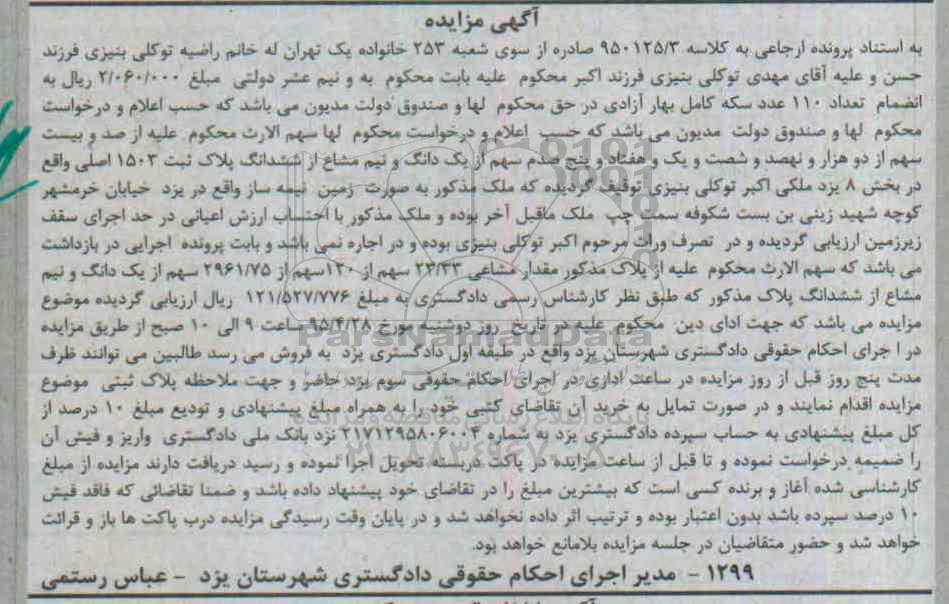 آگهی مزایده
به استناد پرونده ارجاعی به کلاسه ۹۵۰۱۲۵/۳ صادره از سوی شعبه ۲۵۳ خانواده یک تهران له خانم راضیه توکلی بنیزی فرزند
حسن و علیه آقای مهدی توکلی بنیزی فرزند اکبر محکوم علیه بابت محکوم به و نیم عشر دولتی مبلغ ۲/۰۶۰/۰۰۰ ریال به
انضمام تعداد ۱۱۰ عدد سکه کامل بهار آزادی در حق محکوم لها و صندوق دولت مدیون می باشد که حسب اعلام و درخواست
محکوم لها و صندوق دولت مدیون می باشد که حسب اعلام و درخواست محکوم لها سهم الارث محکوم علیه از صد و بیست
سهم از دو هزار و نهصد و شصت و یک و هفتاد و پنج صدم سهم از یک دانگ و نیم مشاع از ششدانگ پلاک ثبت ۱۵۰۳ اصلی واقع
در بخش ۸ یزد ملکی اکبر توکلی بنیزی توقیف گردیده که ملک مذکور به صورت زمین نیمه ساز واقع در یزد خیابان خرمشهر
کوچه شهید زینی بن بست شکوفه سمت چپ ملک ماقبل آخر بوده و ملک مذکور با احتساب ارزش اعیانی در حد اجرای سقف
زیرزمین ارزیابی گردیده و در تصرف وراث مرحوم اکبر توکلی بنیزی بوده و در اجاره نمی باشد و بابت پرونده اجرایی در بازداشت
می باشد که سهم الارث محکوم علیه از پلاک مذکور مقدار مشاعی ۲۳/۳۳ سهم از ۱۲۰سهم از ۲۹۶۱/۷۵ سهم از یک دانگ و نیم
مشاع از ششدانگ پلاک مذکور که طبق نظر کارشناس رسمی دادگستری به مبلغ ۱۲۱/۵۲۷/۷۷۶ ریال ارزیابی گردیده موضوع
مزایده می باشد که جهت ادای دین محکوم علیه در تاریخ روز دوشنبه مورخ ۹۵/۴/۲۸ ساعت ۹ الی ۱۰ صبح از طریق مزایده
در ا جرای احکام حقوقی دادگستری شهرستان یزد واقع در طبقه اول دادگستری یزد به فروش می رسد طالبین می توانند ظرف
مدت پنج روز قبل از روز مزایده در ساعت اداری در اجرای احکام حقوقی سوم یزد حاضر و جهت ملاحظه پلاک ثبتی موضوع
مزایده اقدام نمایند و در صورت تمایل به خرید آن تقاضای کتبی خود را به همراه مبلغ پیشنهادی و تودیع مبلغ ۱۰ درصد از
کل مبلغ پیشنهادی به حساب سپرده دادگستری یزد به شماره ۲۱۷۱۲۹۵۸۰۶۰۰۴ نزد بانک ملی دادگستری واریز و فیش آن
را ضمیمه درخواست نموده و تا قبل از ساعت مزایده در پاکت دربسته تحویل اجرا نموده و رسید دریافت دارند مزایده از مبلغ
کارشناسی شده آغاز و برنده کسی است که بیشترین مبلغ را در تقاضای خود پیشنهاد داده باشد و ضمنا تقاضائی که فاقد فیش
۱۰ درصد سپرده باشد بدون اعتبار بوده و ترتیب اثر داده نخواهد شد و در پایان وقت رسیدگی مزایده درب پاکت ها باز و قرائت
خواهد شد و حضور متقاضیان در جلسه مزایده بلامانع خواهد بود.
۱۲۹۹ - مدیر اجرای احکام حقوقی دادگستری شهرستان یزد - عباس رستمی
ParsNamadData